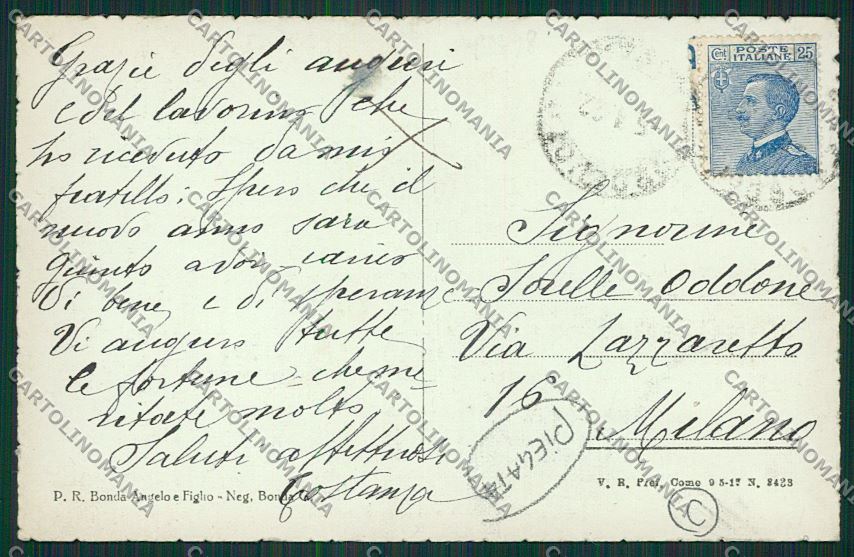 Grazie degli auguri
e del lavorino che
ho ricevuto da mio
fratello; spero che il
nuovo anno sarà
giunto a voi carico
di bene e di speranze
Vi auguro tutte
le fortune che me
ritate molto
Saluti affettuosi
Costanza
P. R. Bonda Angelo e Figlio - Neg. Bonda G.
Cent POSTE ITALIANE 25
Signorine
Sorelle Oddone
Via Lazzaretto
16
Milano
PIEGATA
V. R. Pref. Como 9 5-17 N. 8423
C
CARTOLINOMANIA